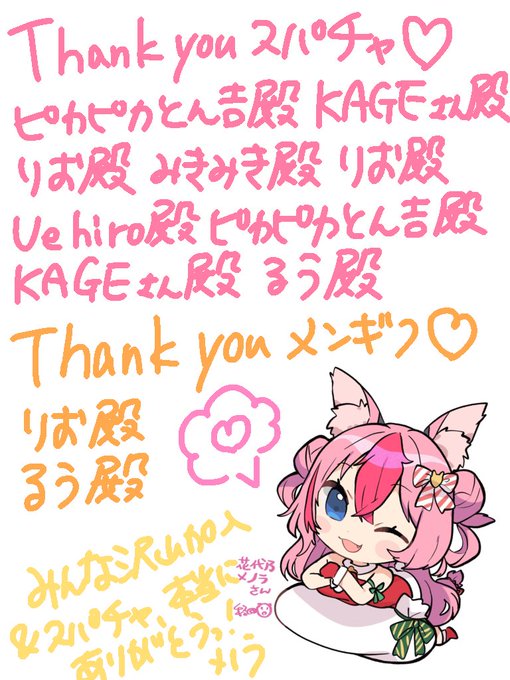 Thank you スパチャ♡
ピカピカとん吉殿 KAGEさん殿
りお殿 みきみき殿 りお殿
Uehiro殿 ピカピカとん吉殿
KAGEさん殿 るう殿
Thank you メンギフ♡
りお殿
るう殿
みんな沢山加入
&スパチャ、本当に
ありがとうっ!
メノラ
花代乃
メノラ
さん